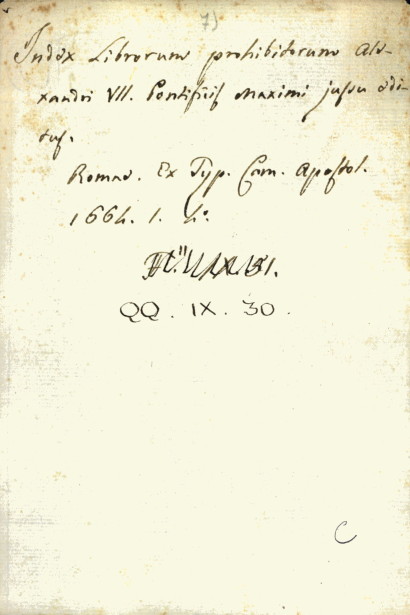 7)
Index Librorum prohibitorum Ale-
xandri VII. Pontificis Maximi jussu edi-
tus.
Romae. Ex Typ. Cam. Apostol.
1664. 1. 4°.
QQ. IX. 30.
C